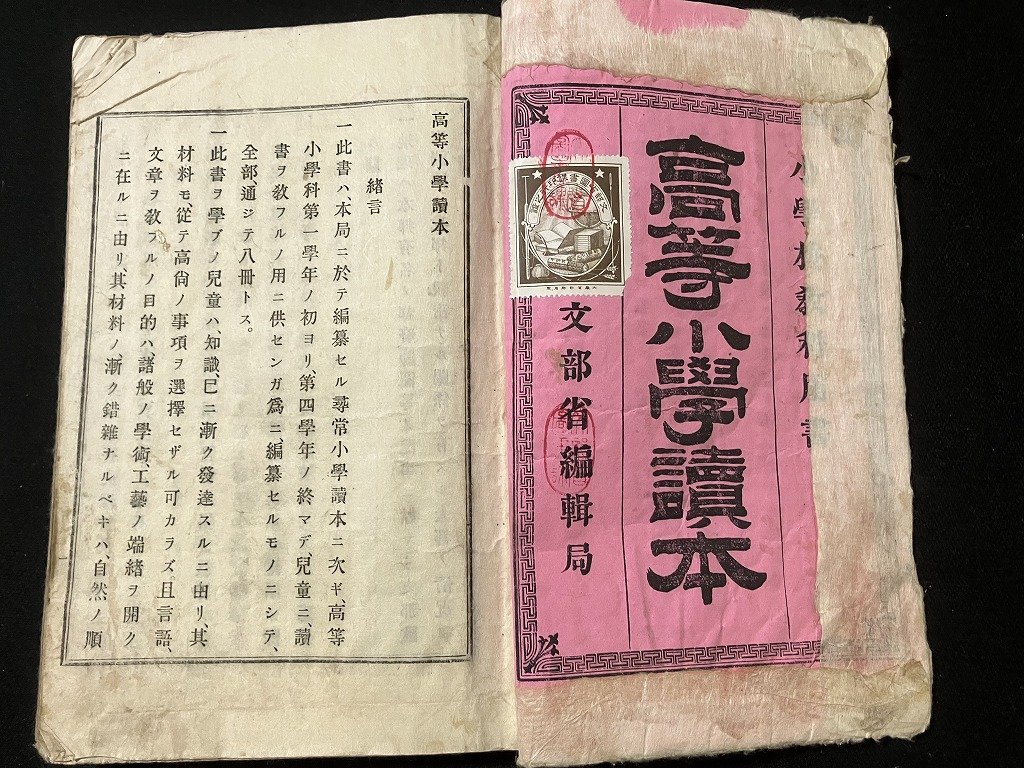 小學校教科用書
高等小學讀本
文部省編輯局
大蔵省印刷局製
高等小學讀本
緒言
一此書ハ、本局ニ於テ編纂セル尋常小學讀本ニ次ギ、高等
小學科第一學年ノ初ヨリ、第四學年ノ終マデ、兒童ニ、讀
書ヲ教フルノ用ニ供センガ爲ニ、編纂セルモノニシテ、
全部、通ジテ八冊トス。
一此書ヲ學ブノ兒童ハ、知識、已ニ漸ク發達スルニ由リ、其
材料モ、從テ高尙ノ事項ヲ選擇セザル可カラズ、且言語、
文章ヲ教フルノ目的ハ、諸般ノ學術、工藝ノ端緒ヲ開ク
ニ在ルニ由リ、其材料ノ、漸ク錯雜ナルベキハ、自然ノ順